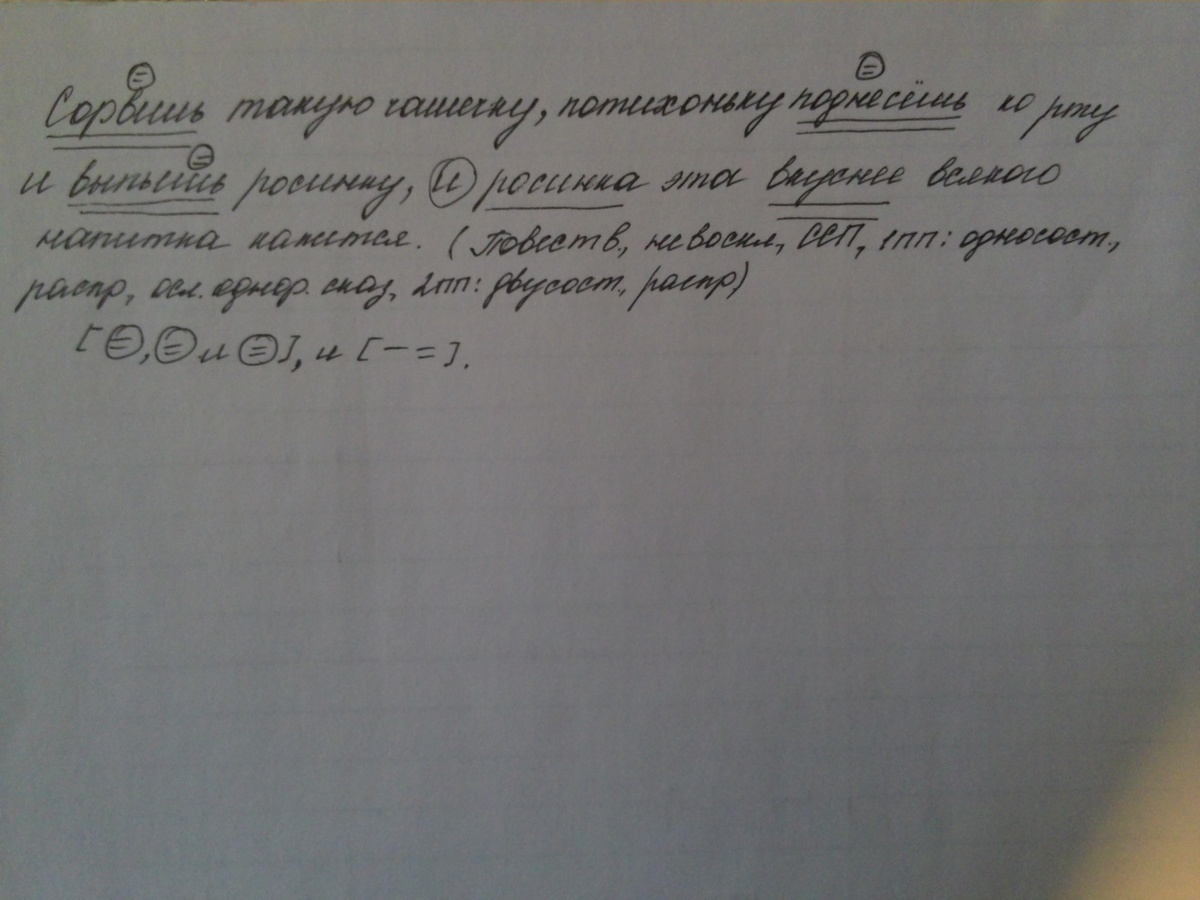 Сорвёшь такую чашечку, потихоньку поднесёшь ко рту
и выпьешь росинку, и росинка эта вкуснее всякого
напитка кажется. (Повеств., невоскл., ССП, 1ПП: односост.,
распр., осл. однор. сказ., 2ПП: двусост., распр.)
[=, = и =], и [– =].